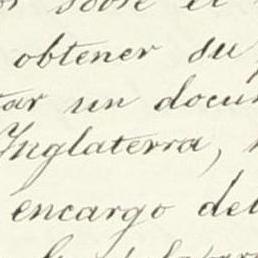 sobre el
obtener su
tar un docu
Inglaterra,
encargo del